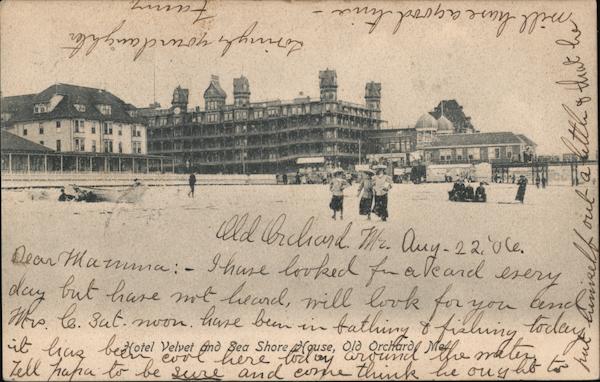 Old Orchard. Me. Aug - 22, '06.
Dear Mamma: - I have looked for a card every
day but have not heard, will look for you and
Mrs. C. Sat. noon. have been in bathing & fishing today
Hotel Velvet and Sea Shore House, Old Orchard, Me.
it has been cool here today around the water,
tell papa to be sure and come think he ought to
put himself out a little & that he
will have a good time -
lovingly your daughter
Fanny